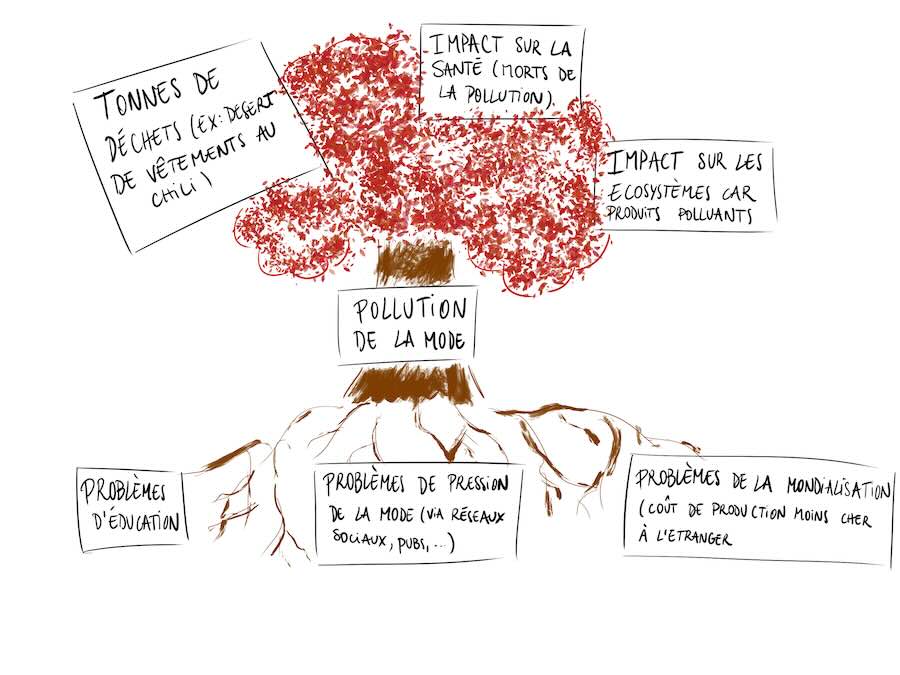 TONNES DE
DÉCHETS (EX: DESERT
DE VÊTEMENTS AU
CHILI)
IMPACT SUR LA
SANTÉ (MORTS DE
LA POLLUTION).
IMPACT SUR LES
ECOSYSTÈMES CAR
PRODUITS POLLUANTS
POLLUTION
DE LA MODE
PROBLÈMES
D'ÉDUCATION
PROBLÈMES DE PRESSION
DE LA MODE (VIA RÉSEAUX
SOCIAUX, PUBS, ...)
PROBLÈMES DE LA MONDIALISATION
(COÛT DE PRODUCTION MOINS CHER
À L'ETRANGER